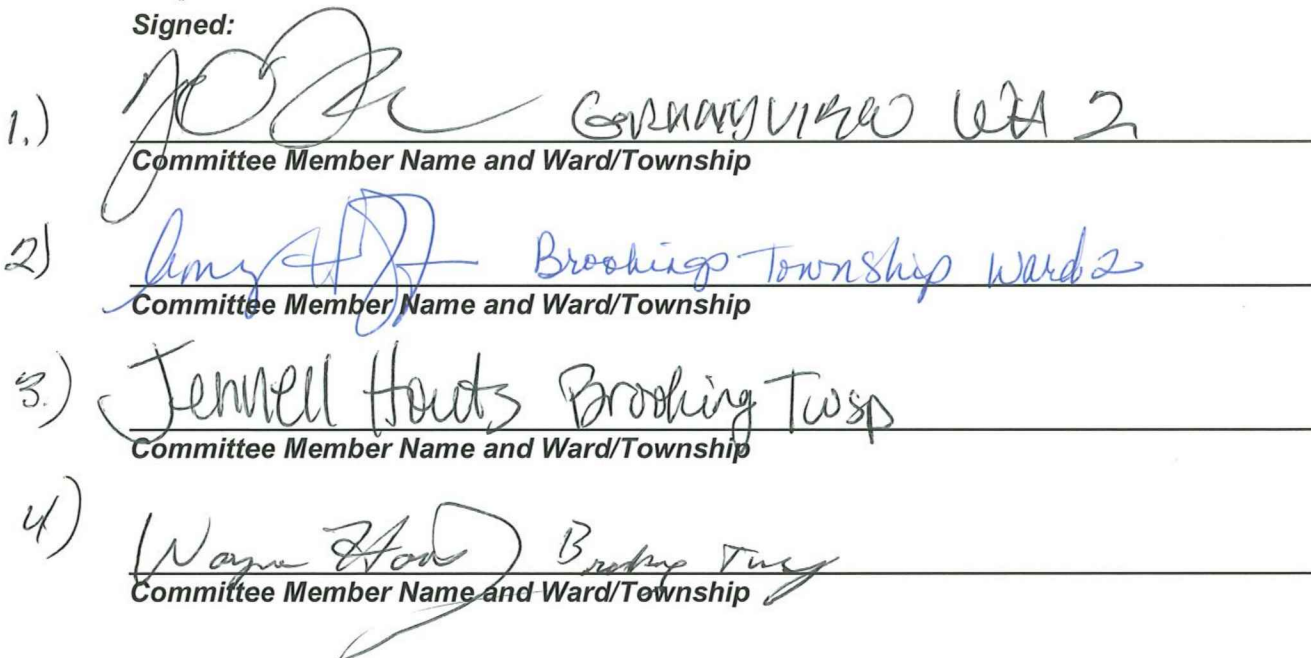 Signed:
1.) 2
Committee Member Name and Ward/Township
2) Amy Brookings Township Ward 2
Committee Member Name and Ward/Township
3.) Jennell Houts Brooking Twsp
Committee Member Name and Ward/Township
4) Wayne Brooking Twsp
Committee Member Name and Ward/Township